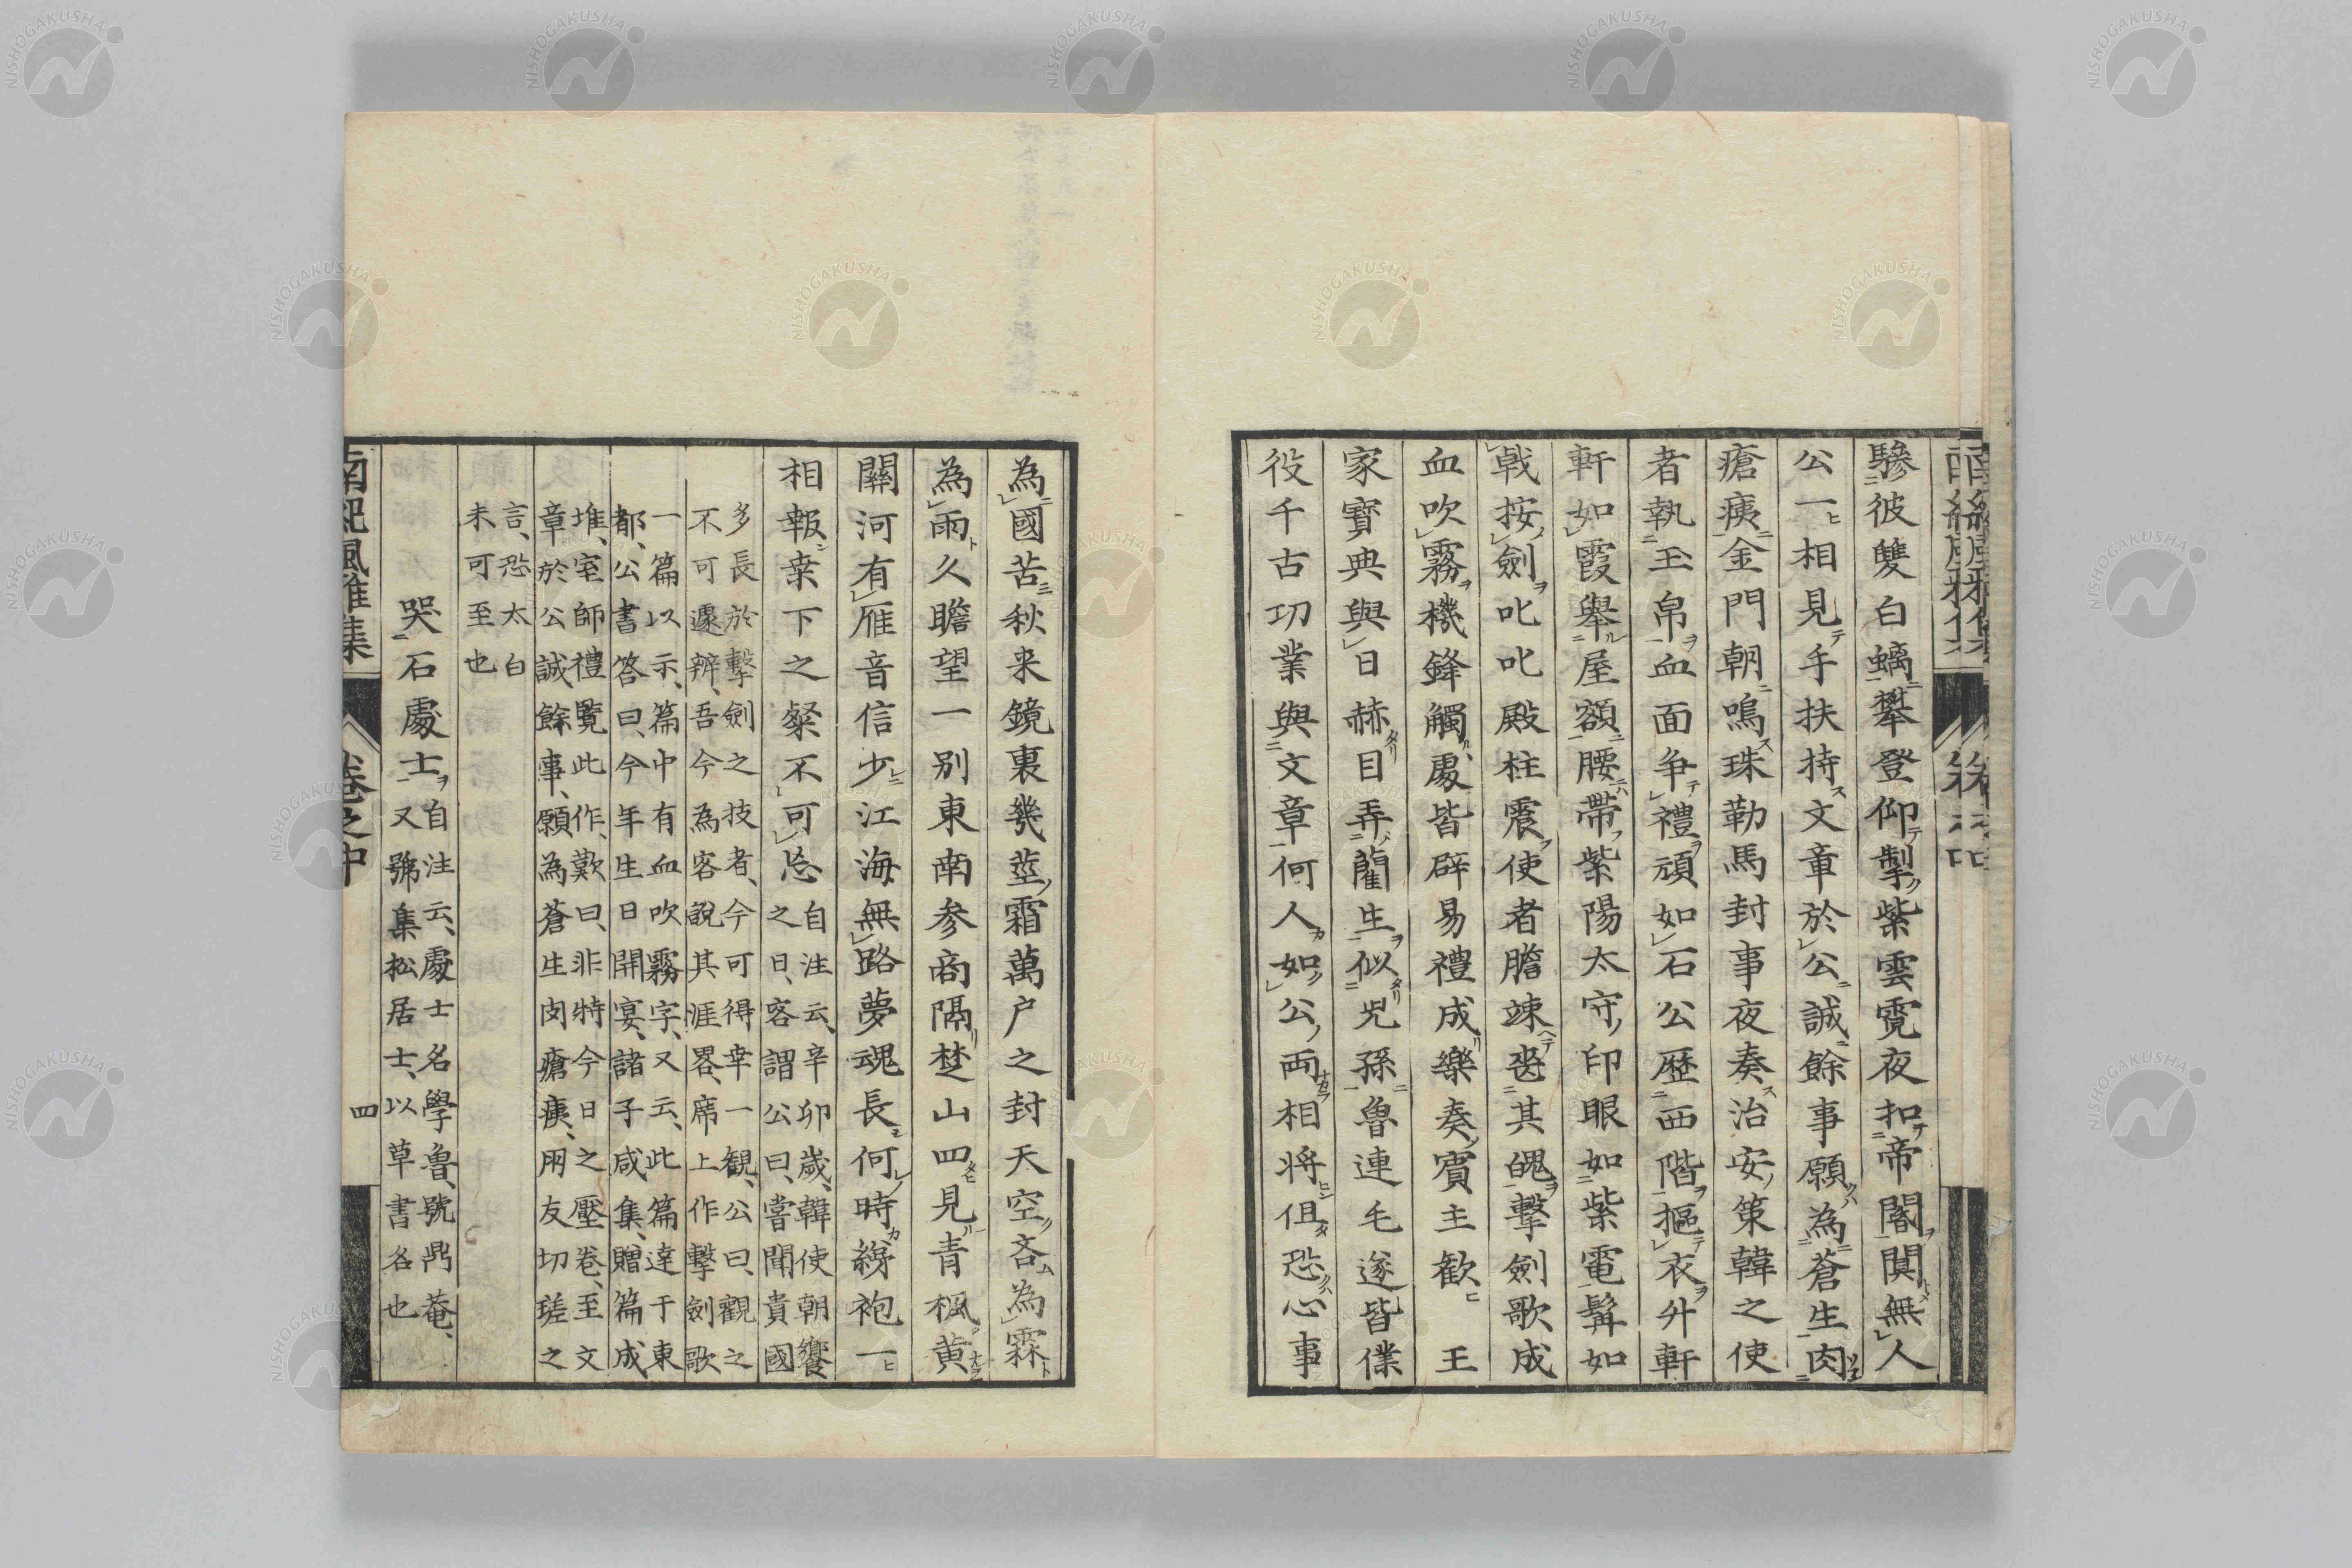 驂彼雙白螭攀登仰掣紫雲霓夜扣帝閽闃無人
公一相見手扶持文章於公誠餘事願為蒼生肉
瘡痍金門朝鳴珠勒馬封事夜奏治安策韓之使
者執玉帛血面争禮頑如石公歴西階摳衣升軒
軒如霞舉屋額腰帶紫陽太守印眼如紫電髯如
戟按劍叱叱殿柱震使者膽竦褫其魄擊劍歌成
血吹霧機鋒觸處皆辟易禮成樂奏賓主歡 王
家寳典與日赫目弄藺生似兒孫魯連毛遂皆僕
役千古功業與文章何人如公兩相將但恐心事
為國苦秋来鏡裏幾莖霜萬户之封天空吝為霖
為雨久瞻望一別東南参商隔楚山四見青楓黄
關河有雁音信少江海無路夢魂長何時綈袍一
相報桒下之粲不可忘自注云辛夘歲、韓使朝饗
之日、客謂公曰、嘗聞貴國
多長於擊劍之技者、今可得幸一観、公曰、觀之
不可遽辨、吾今為客說其涯畧、席上作擊劍歌
一篇以示、篇中有血吹霧字、又云、此篇達于東
都、公書答曰、今年生日開宴、諸子咸集、贈篇成
堆、室師禮覽此作、歎曰、非特今日之壓卷、至文
章於公誠餘事、願為蒼生肉瘡痍、朋友切瑳之
言、恐太白
未可至也
哭石處士自注云、處士名學魯、號鼎菴、
又號集松居士、以草書名也
南紀風雅集 卷之中 四